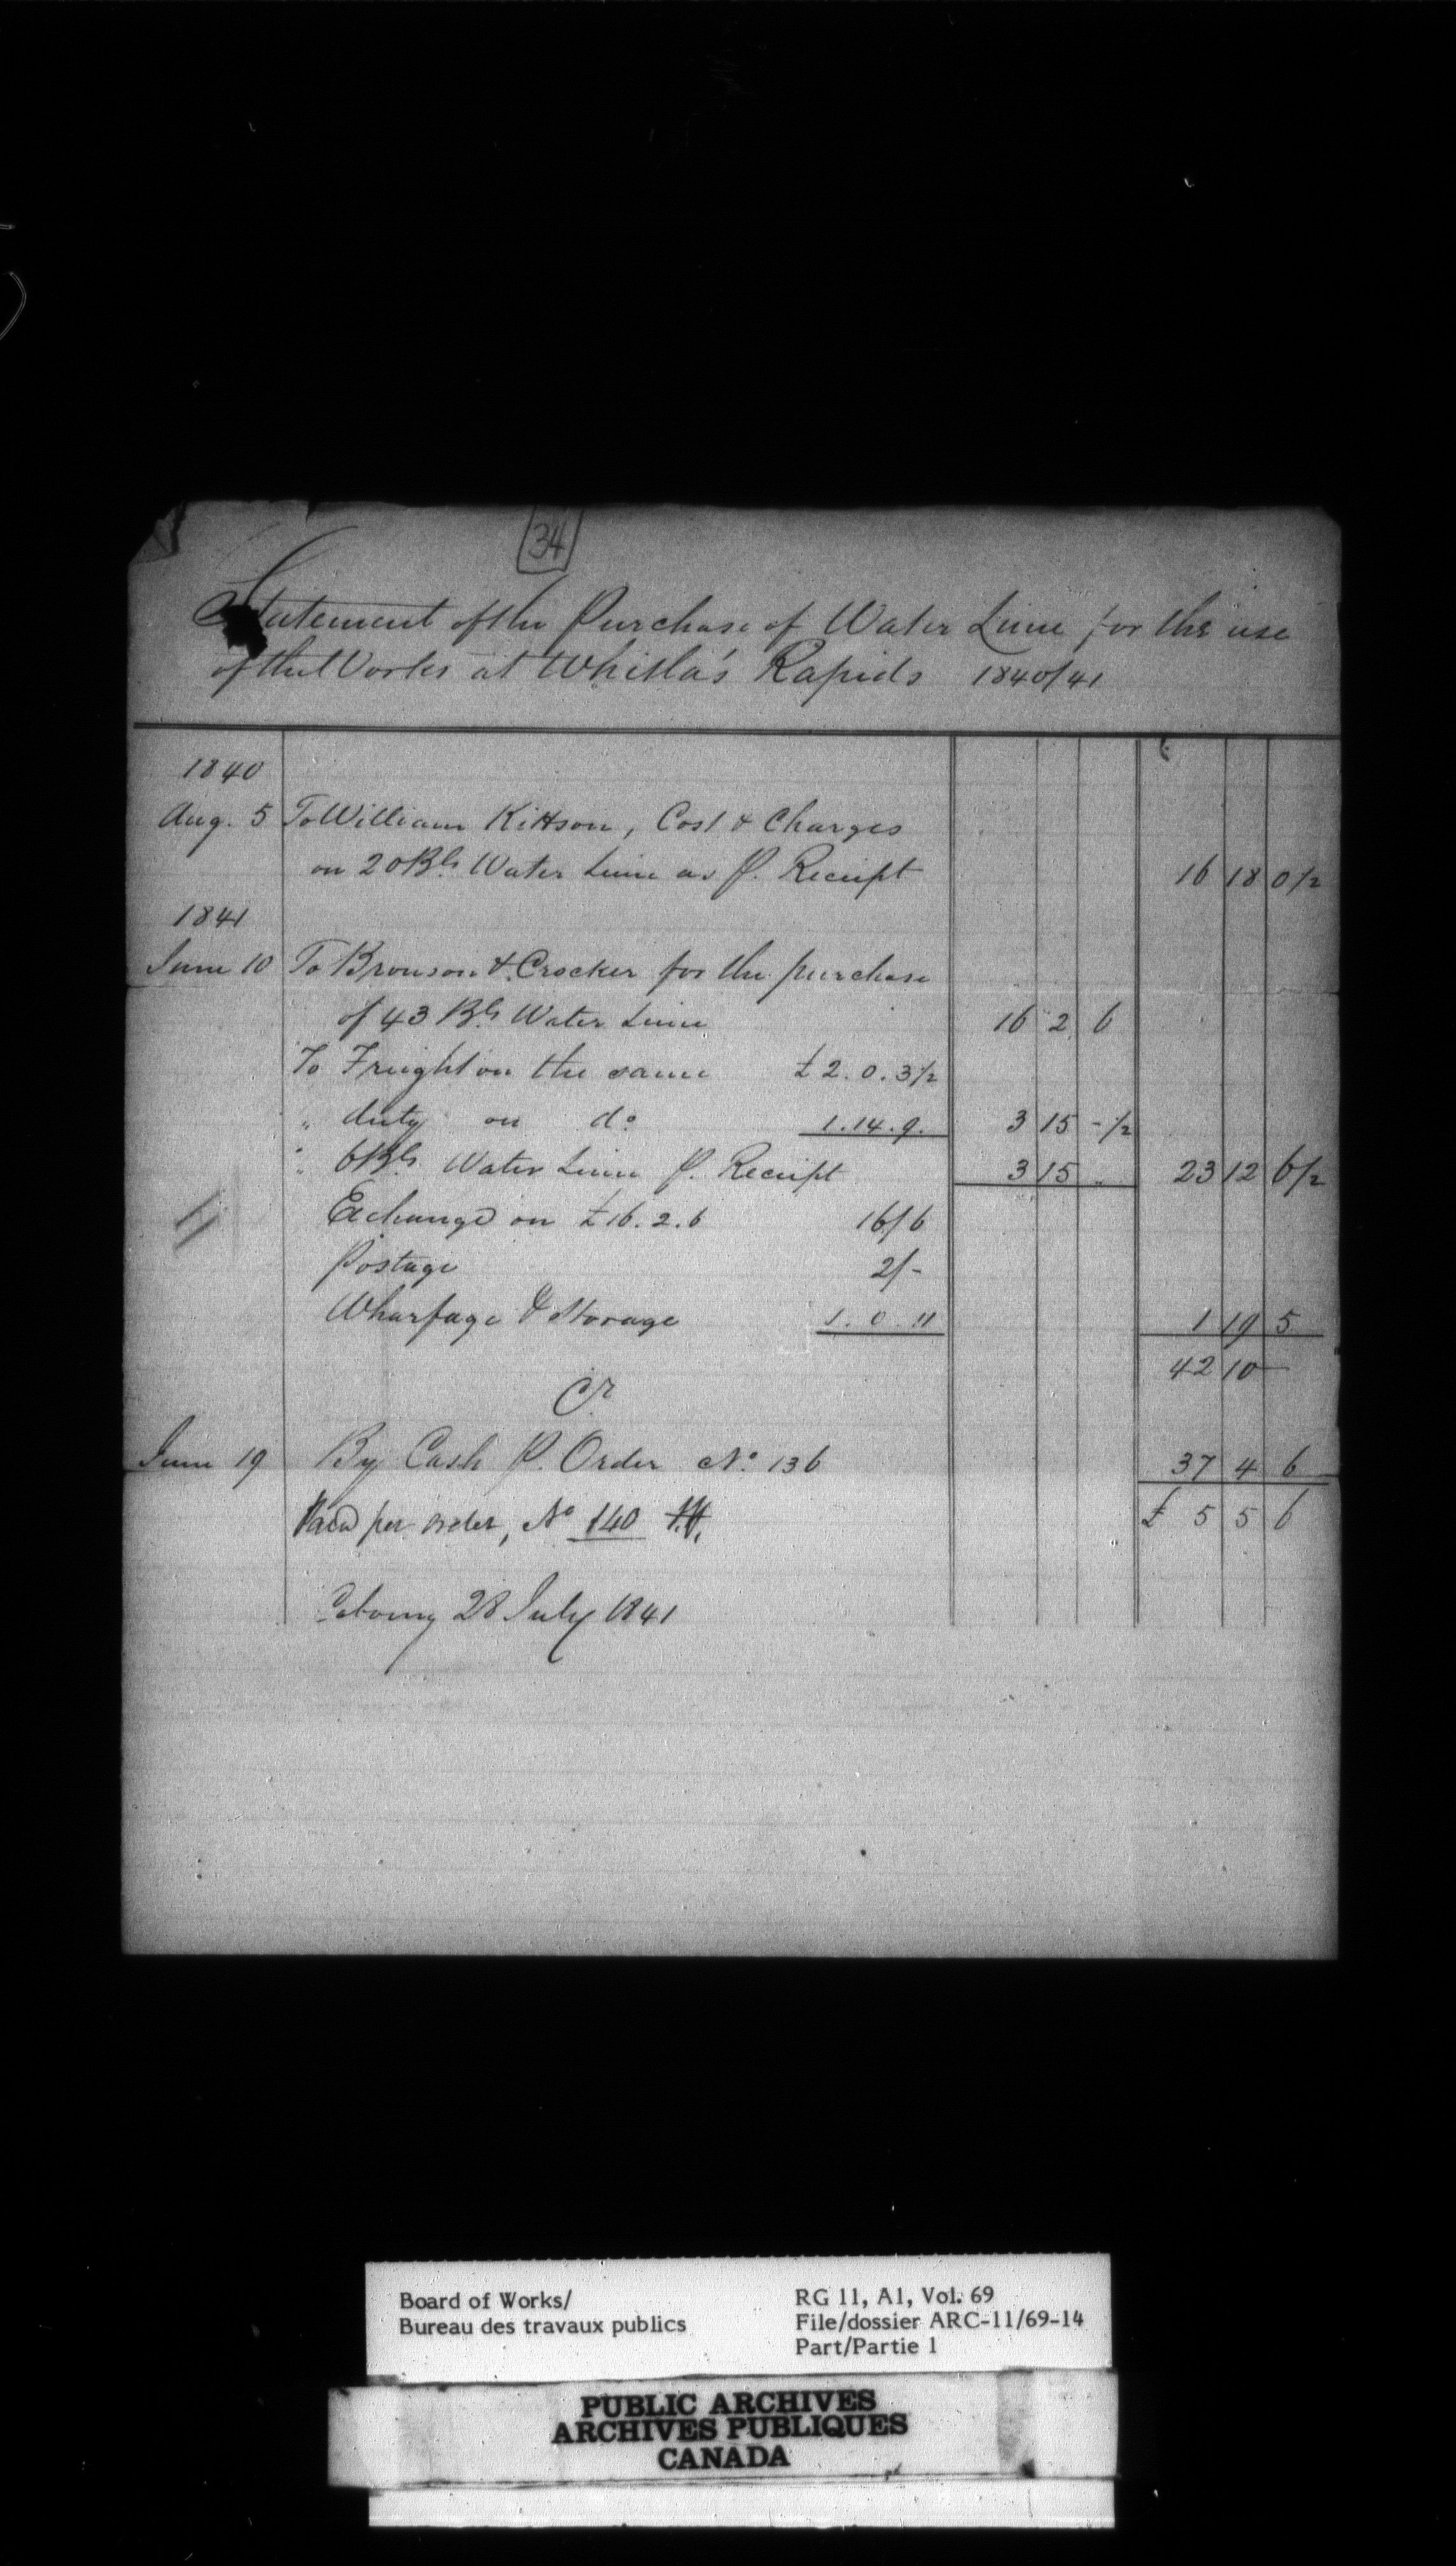 34
Statement of the Purchase of Water Lime for the use
of the Works at Whitla's Rapids 1840/41
1840
Aug. 5 To William Kittson, Cost & Charges
on 20 Bls Water Lime as P. Receipt 16 18 0½
1841
June 10 To Bronson & Crocker for the purchase
of 43 Bls Water Lime 16 2 6
To Freight on the same £ 2. 0. 3½
" duty on do 1. 14. 9. 3 15 - ½
" 6 Bls Water Lime P. Receipt 3 15 " 23 12 6½
Exchange on £16. 2. 6 16/6
Postage 2/-
Wharfage & Storage 1. 0. 11 1 19 5
42 10 —
Cr
June 19 By Cash P. Order No. 136 37 4 6
Paid per order, No 140 £ 5 5 6
Cobourg 28 July 1841
Board of Works/
Bureau des travaux publics
RG 11, A1, Vol. 69
File/dossier ARC-11/69-14
Part/Partie 1
PUBLIC ARCHIVES
ARCHIVES PUBLIQUES
CANADA